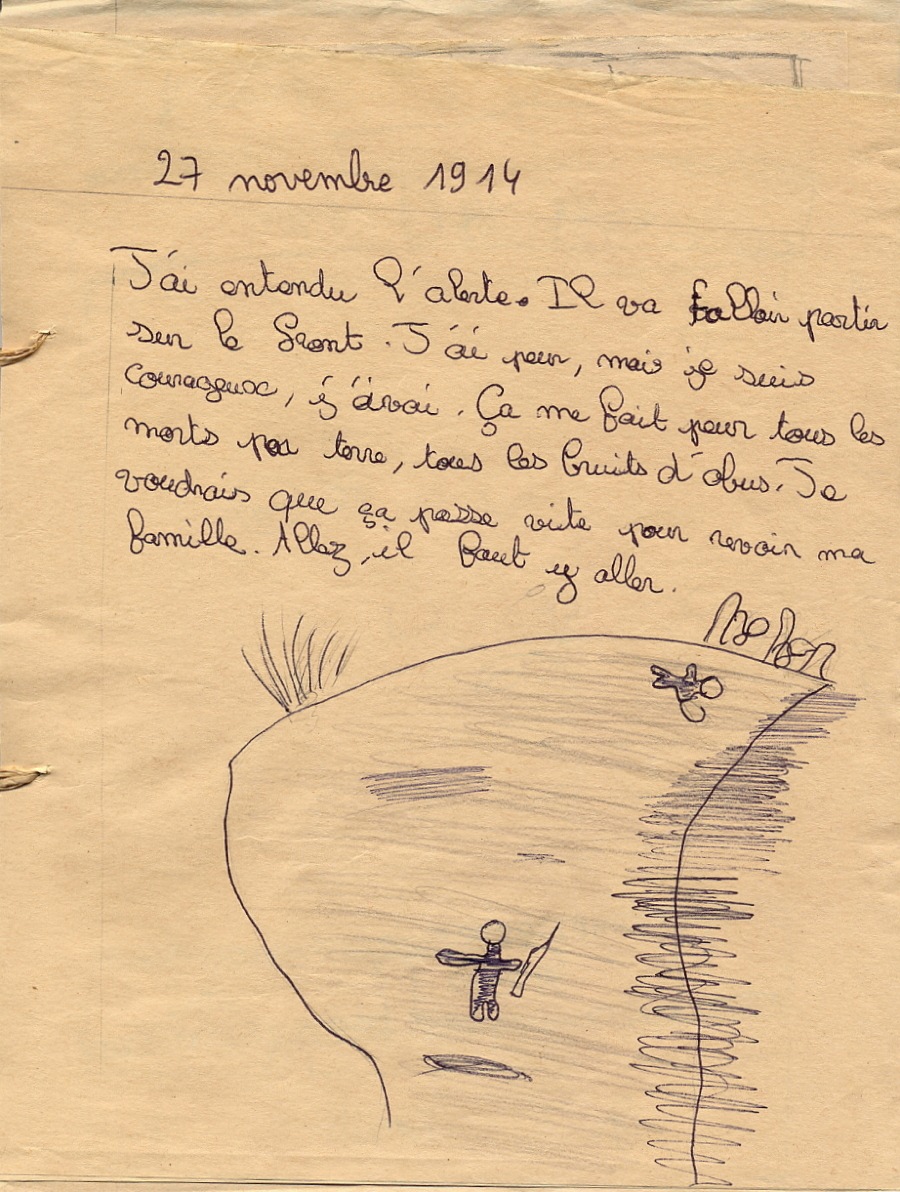 27 novembre 1914
J'ai entendu l'alerte. Il va falloir partir
sur le front. J'ai peur, mais je suis
courageux, j'y vai. Ça me fait peur tous les
morts par terre, tous les bruits d'obus. Je
voudrais que ça passe vite pour revoir ma
famille. Allez, il faut y aller.